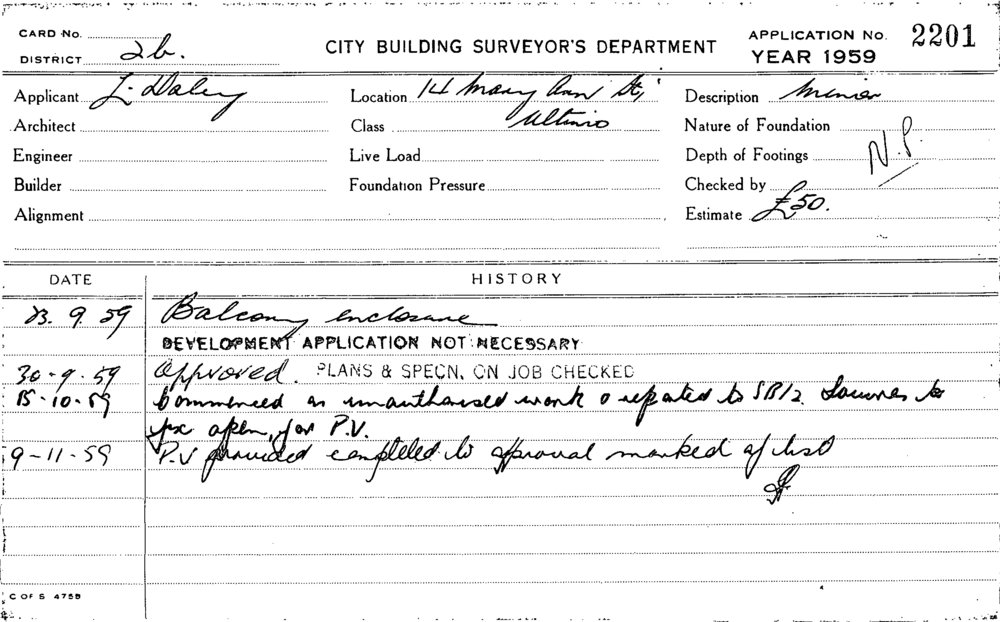 CARD No.
DISTRICT 2b.
CITY BUILDING SURVEYOR'S DEPARTMENT
APPLICATION No. 2201
YEAR 1959
Applicant L. Daley
Location 14 Mary Ann St,
Description Minor
Architect
Class Ultimo
Nature of Foundation
Engineer
Live Load
Depth of Footings N.P.
Builder
Foundation Pressure
Checked by
Alignment
Estimate £50.
DATE HISTORY
23. 9. 59 Balcony enclosure
DEVELOPMENT APPLICATION NOT NECESSARY
30-9-59 Approved. PLANS & SPECN. ON JOB CHECKED
15-10-59 Commenced as unauthorised work & repated to SB12. Louvres to
fix open, for P.V.
9-11-59 P.V provided completed to approval marked of list
C OF S 475B